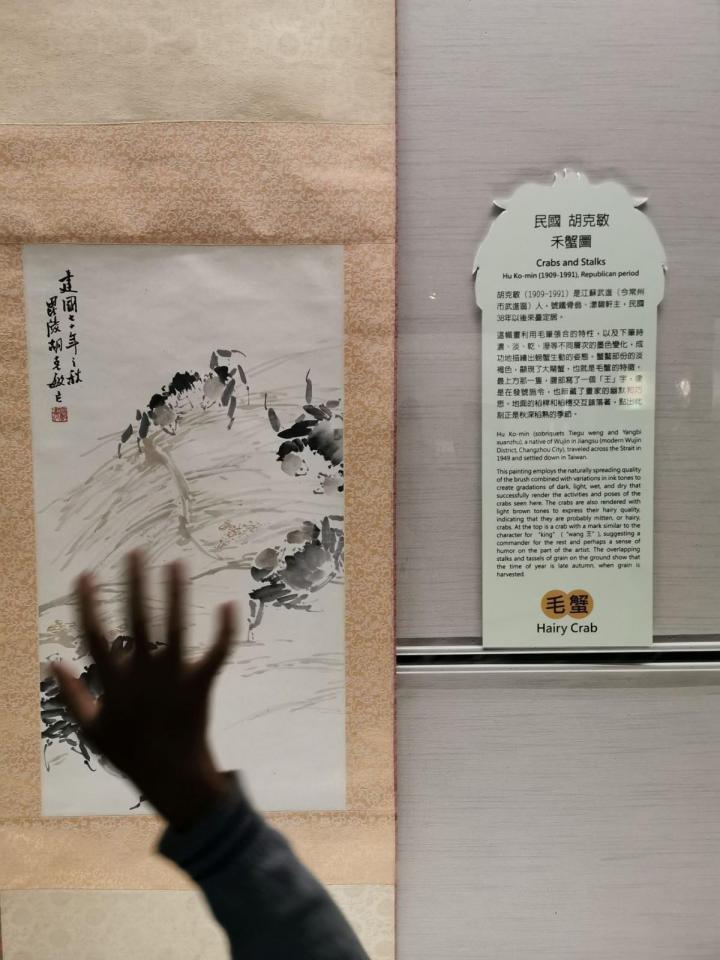 建國七十年之秋
毘陵胡克敏
民國 胡克敏
禾蟹圖
Crabs and Stalks
Hu Ko-min (1909-1991), Republican period
胡克敏（1909-1991）是江蘇武進（今常州
市武進區）人，號鐵骨翁、漾碧軒主，民國
38年以後來臺定居。
這幅畫利用毛筆張合的特性，以及下筆時
濃、淡、乾、溼等不同層次的墨色變化，成
功地描繪出螃蟹生動的姿態。蟹螯部份的淡
褐色，顯現了大閘蟹，也就是毛蟹的特徵，
最上方那一隻，腹部寫了一個「王」字，像
是在發號施令，也祈藏了畫家的幽默和巧
思。地面的稻稈和稻穗交互錯落著，點出此
刻正是秋深稻熟的季節。
Hu Ko-min (sobriquets Tiegu weng and Yangbi
xuanzhu), a native of Wujin in Jiangsu (modern Wujin
District, Changzhou City), traveled across the Strait in
1949 and settled down in Taiwan.
This painting employs the naturally spreading quality
of the brush combined with variations in ink tones to
create gradations of dark, light, wet, and dry that
successfully render the activities and poses of the
crabs seen here. The crabs are also rendered with
light brown tones to express their hairy quality,
indicating that they are probably mitten, or hairy,
crabs. At the top is a crab with a mark similar to the
character for "king" ( "wang 王" ), suggesting a
commander for the rest and perhaps a sense of
humor on the part of the artist. The overlapping
stalks and tassels of grain on the ground show that
the time of year is late autumn, when grain is
harvested.
毛蟹
Hairy Crab